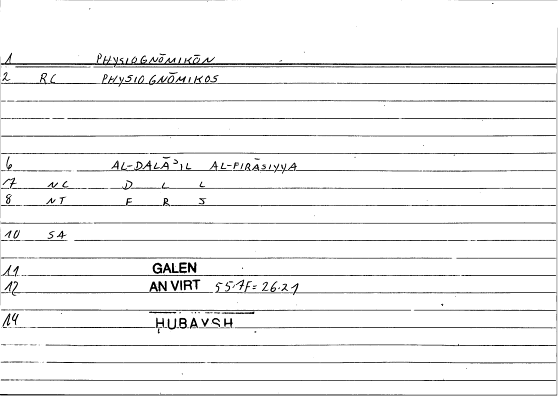 1 PHYSIOGNŌMIKŌN
2 RC PHYSIOGNŌMIKOS
6 AL-DALĀʾIL AL-FIRĀSIYYA
7 NC D L L
8 NT F R S
10 SA
11 GALEN
12 AN VIRT 55.7F = 26.21
14 ḤUBAYSH